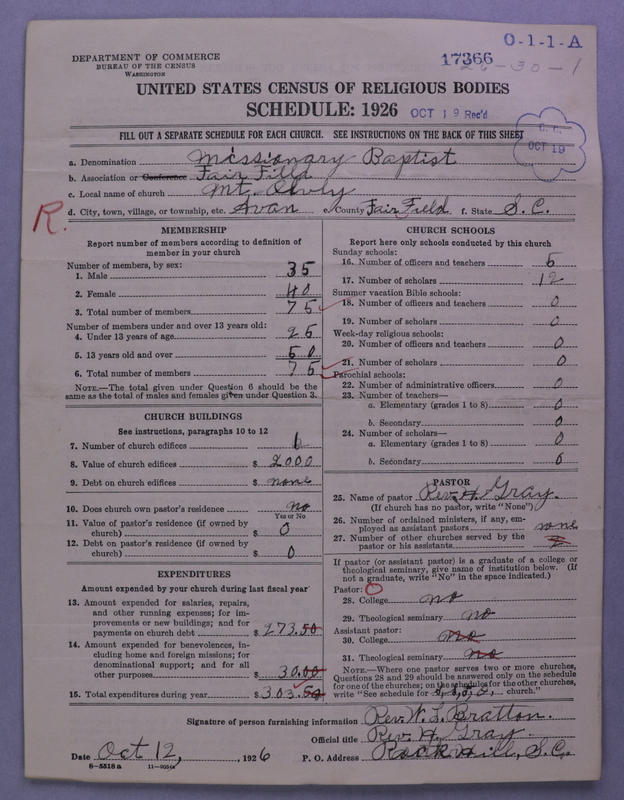 O-1-1-A
DEPARTMENT OF COMMERCE
BUREAU OF THE CENSUS
WASHINGTON
17366
26-30-1
UNITED STATES CENSUS OF RELIGIOUS BODIES
SCHEDULE: 1926
OCT 19 Rec'd
OCT 19
FILL OUT A SEPARATE SCHEDULE FOR EACH CHURCH. SEE INSTRUCTIONS ON THE BACK OF THIS SHEET
a. Denomination Missionary Baptist
b. Association or Conference Fair Filld
c. Local name of church Mt. Olvly
d. City, town, village, or township, etc. Avan e. County Fair Field f. State S.C.
R.
MEMBERSHIP
Report number of members according to definition of
member in your church
Number of members, by sex:
1. Male 35
2. Female 40
3. Total number of members 75
Number of members under and over 13 years old:
4. Under 13 years of age 25
5. 13 years old and over 50
6. Total number of members 75
NOTE.—The total given under Question 6 should be
same as the total of males and females given under Question 3.
CHURCH BUILDINGS
See instructions, paragraphs 10 to 12
7. Number of church edifices 1
8. Value of church edifices $ 2000
9. Debt on church edifices $ none
10. Does church own pastor's residence no
Yes or No
11. Value of pastor's residence (if owned by
church) $ 0
12. Debt on pastor's residence (if owned by
church) $ 0
EXPENDITURES
Amount expended by your church during last fiscal year
13. Amount expended for salaries, repairs,
and other running expenses; for im-
provements or new buildings; and for
payments on church debt $ 273.50
14. Amount expended for benevolences, in-
cluding home and foreign missions; for
denominational support; and for all
other purposes 30.00
15. Total expenditures during year $ 303.50
CHURCH SCHOOLS
Report here only schools conducted by this church
Sunday schools:
16. Number of officers and teachers 5
17. Number of scholars 12
Summer vacation Bible schools:
18. Number of officers and teachers 0
19. Number of scholars 0
Week-day religious schools:
20. Number of officers and teachers 0
21. Number of scholars 0
Parochial schools:
22. Number of administrative officers 0
23. Number of teachers—
a. Elementary (grades 1 to 8) 0
b. Secondary 0
24. Number of scholars—
a. Elementary (grades 1 to 8) 0
b. Secondary 0
PASTOR
25. Name of pastor Rev. H. Gray.
(If church has no pastor, write "None")
26. Number of ordained ministers, if any, em-
ployed as assistant pastors none
27. Number of other churches served by the
pastor or his assistants
If pastor (or assistant pastor) is a graduate of a college or
theological seminary, give name of institution below. (If
not a graduate, write "No" in the space indicated.)
Pastor: O
28. College no
29. Theological seminary no
Assistant pastor:
30. College no
31. Theological seminary no
NOTE.—Where one pastor serves two or more churches,
Questions 28 and 29 should be answered only on the schedule
for one of the churches; on the schedules for the other churches,
write "See schedule for church."
Signature of person furnishing information Rev. W. L. Bratton.
Official title Rev. H. Gray
Date Oct 12, , 1926 P. O. Address Rock Hill, S.C.
8-5518a